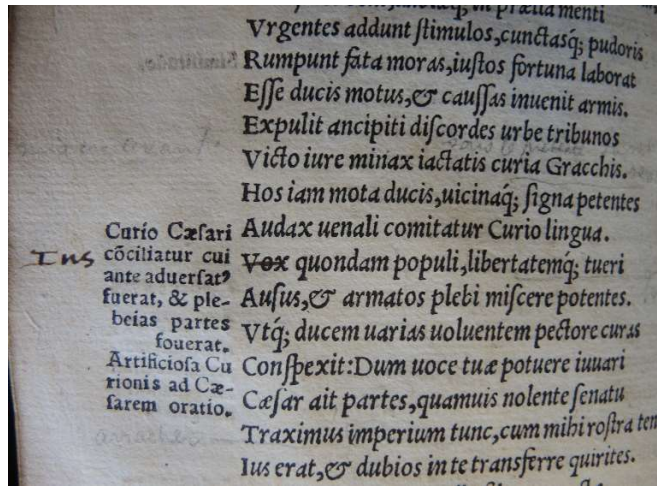 menti
Vrgentes addunt ſtimulos,cunctasq́; pudoris
Rumpunt fata moras,iuſtos fortuna laborat
Eſſe ducis motus,& cauſſas inuenit armis.
Expulit ancipiti diſcordes urbe tribunos
Victo iure minax iactatis curia Gracchis.
Hos iam mota ducis,uicinaq́; ſigna petentes
Audax uenali comitatur Curio lingua.
Vox quondam populi,libertatemq́; tueri
Auſus,& armatos plebi miſcere potentes.
Vtq́; ducem uarias uoluentem pectore curas
Conſpexit:Dum uoce tuæ potuere iuuari
Cæſar ait partes,quamuis nolente ſenatu
Traximus imperium tunc,cum mihi roſtra ten
Ius erat,& dubios in te transferre quirites.
Curio Cæſari
cõciliatur cui
ante aduerſatꝰ
fuerat, & ple-
beias partes
fouerat.
Artificioſa Cu
rionis ad Cæ-
ſarem oratio.
Ius